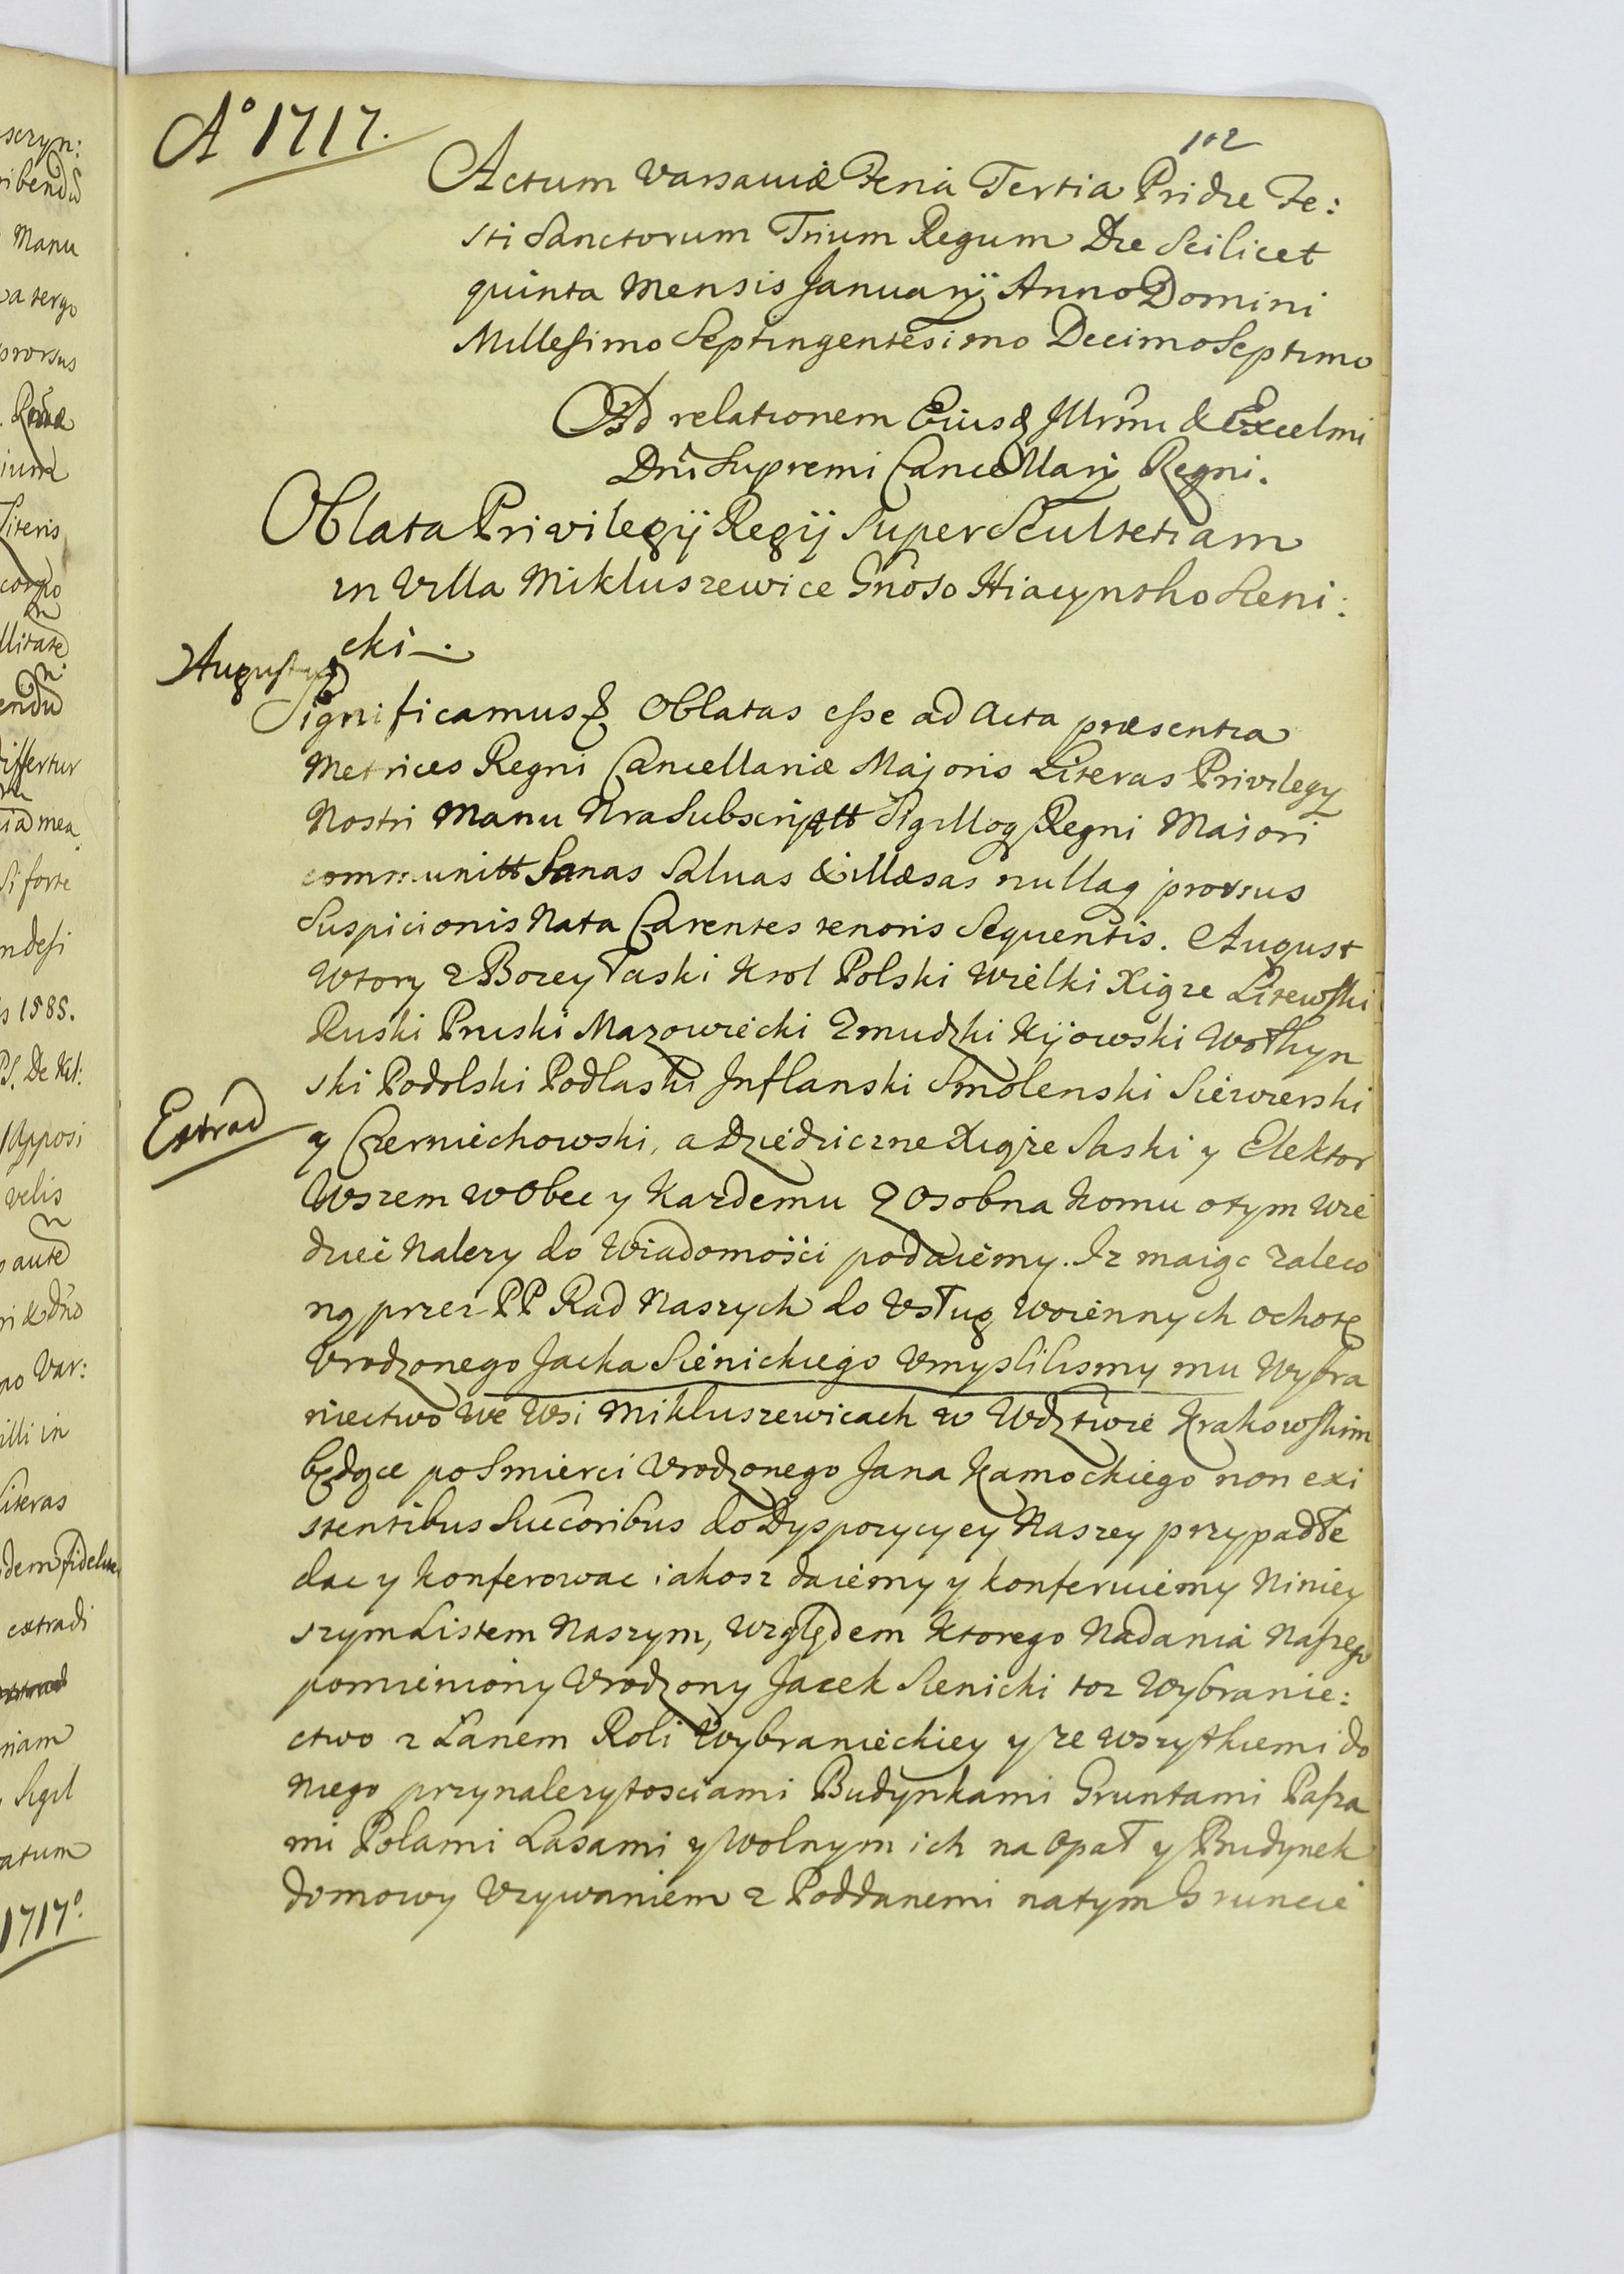 Aº 1717.
102
Actum Varsaviæ Feria Tertia Pridie Fe:
sti Sanctorum Trium Regum Die Scilicet
quinta Mensis Januarij Anno Domini
Millesimo Septingentesimo Decimo Septimo
Ad relationem Eiusq Illrmi & Excelmi
Dni Supremi Cancellarij Regni.
Oblata Privilegij Regij Super Scultetiam
in Villa Mikluszewice Gnoso Hiacyntho Sieni:
cki.
Augustus
Significamus & Oblatas esse ad Acta præsentia
Metrices Regni Cancellariæ Majoris Literas Privilegy
Nostri Manu Nra Subscriptt Sigilloq Regni Maiori
communitt Sanas Salvas & illæsas nullaq prorsus
Suspicionis Nata Carentes tenoris Sequentis. August
Wtory z Bozey Łaski Krol Polski Wielki Xiąze Litewski
Ruski Pruski Mazowiecki Zmudzki Kijowski Wołhyn
ski Podolski Podlaski Inflanski Smolenski Siewierski
Extrad
y Czerniechowski, a Dziedziczne Xiąże Saski y Elektor
Wszem w Obec y Kazdemu z Osobna komu o tym wie
dzieć Nalezy do Wiadomości podaiemy. Iz maiąc zaleco
ną przez PP Rad Naszych do Vsług woiennych ochotę
Vrodzonego Jacka Sienickiego Vmyslilismy mu Wybra
niectwo we Wsi Mikluszewicach w Wdztwie Krakowskim
będące po Smierci Vrodzonego Jana Kamockiego non exi
stentibus Succoribus do Dyspozycyey Naszey przypadłe
dac y konferowac iakosz daiemy y konferuiemy Niniey
szym Listem Naszym, Względem ktorego Nadania Naszego
pomieniony Vrodzony Jacek Sienicki toz Wybranie:
ctwo z Łanem Roli Wybranieckiey y ze wszytkiemi do
Niego przynalezytosciami Budynkami Gruntami Pasza
mi Polami Lasami y Wolnym ich na Opał y Budynek
domowy Vzywaniem z Poddanemi na tym Gruncie